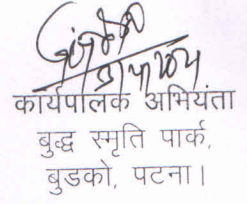 कार्यपालक अभियंता
बुद्ध स्मृति पार्क,
बुडको, पटना।